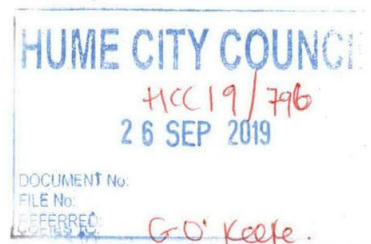 HUME CITY COUNCI
HCC19/796
26 SEP 2019
DOCUMENT No:
FILE No:
REFERRED:
COPIES TO:
G O' Keefe.